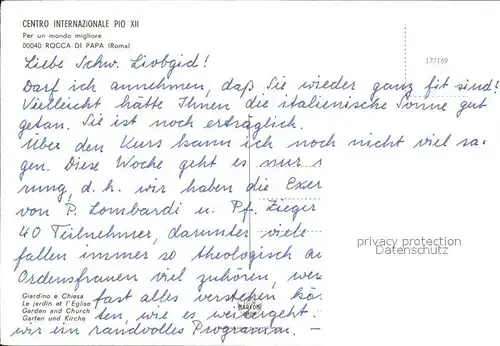 CENTRO INTERNAZIONALE PIO XII
Per un mondo migliore
00040 ROCCA DI PAPA (Roma)
177/169
Liebe Schw. Liobgid!
Darf ich annehmen, daß Sie wieder ganz fit sind!
Vielleicht hätte Ihnen die italienische Sonne gut
getan. Sie ist noch erträglich.
Über den Kurs kann ich noch nicht viel sa-
gen. Diese Woche geht es nur
rung, d.h. wir haben die Exer
von P. Lombardi u. Pf. Zieger
40 Teilnehmer, darunter viele
fallen immer so theologisch au
Ordensfrauen viel zuhören, wer
fast alles verstehen kö
ten, wie es weitergeht.
wir ein randvolles Programm. –
Giardino e Chiesa
Le jardin et l'Eglise
Garden and Church
Garten und Kirche
privacy protection
Datenschutz